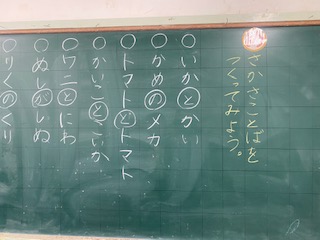 さかさことばを
つくってみよう。
○いかとかい
○かめのメカ
○トマトとトマト
○かいことこいか
○ワニとにわ
○ぬしがしぬ
○りくのくり